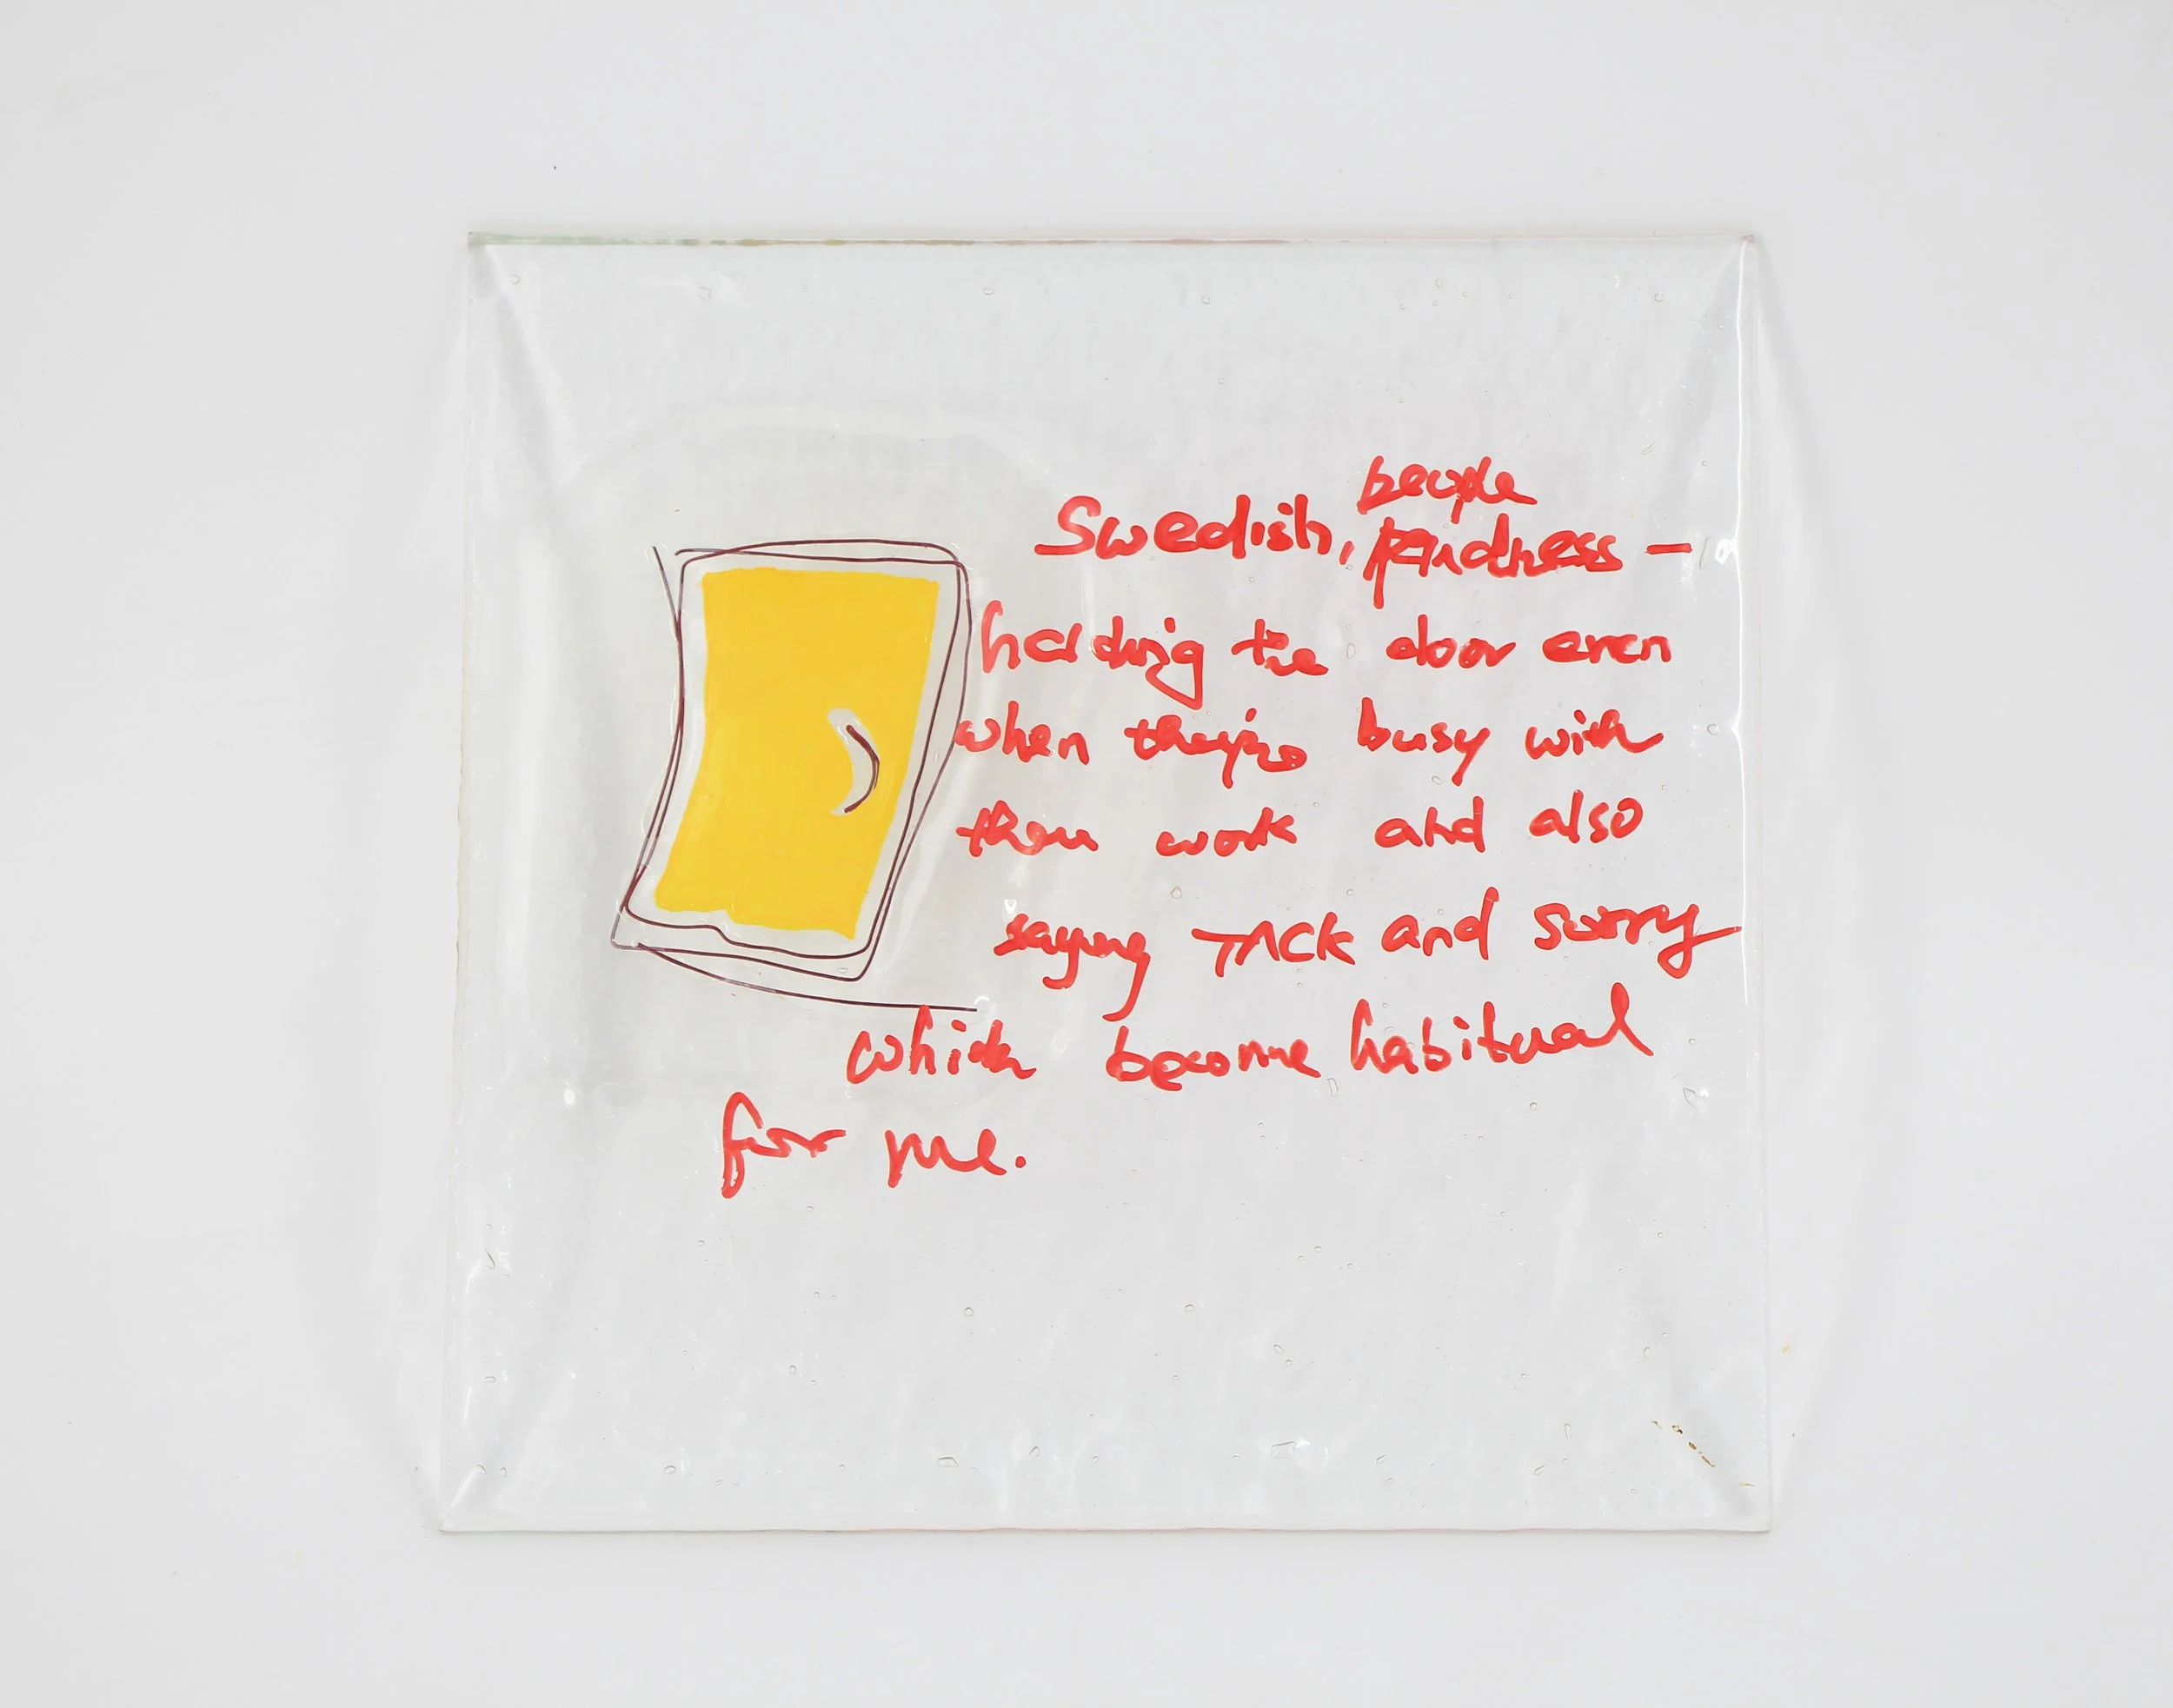 people
Swedish, kindness -
holding the door even
when they're busy with
their work and also
saying TACK and sorry
which become habitual
for me.